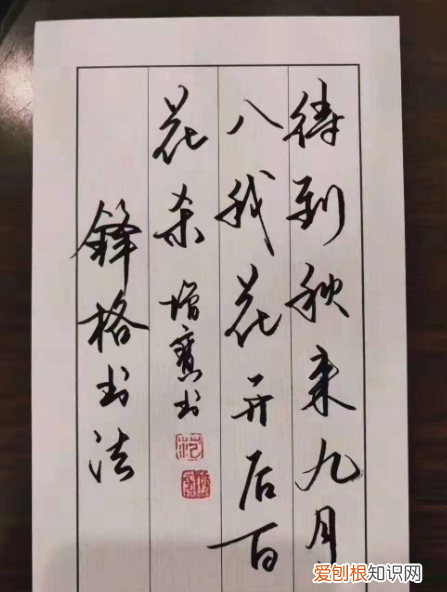 待到秋来九月
八我花开后百
花杀 增宝书
锋格书法
爱刨根知识网
www.baogen.com